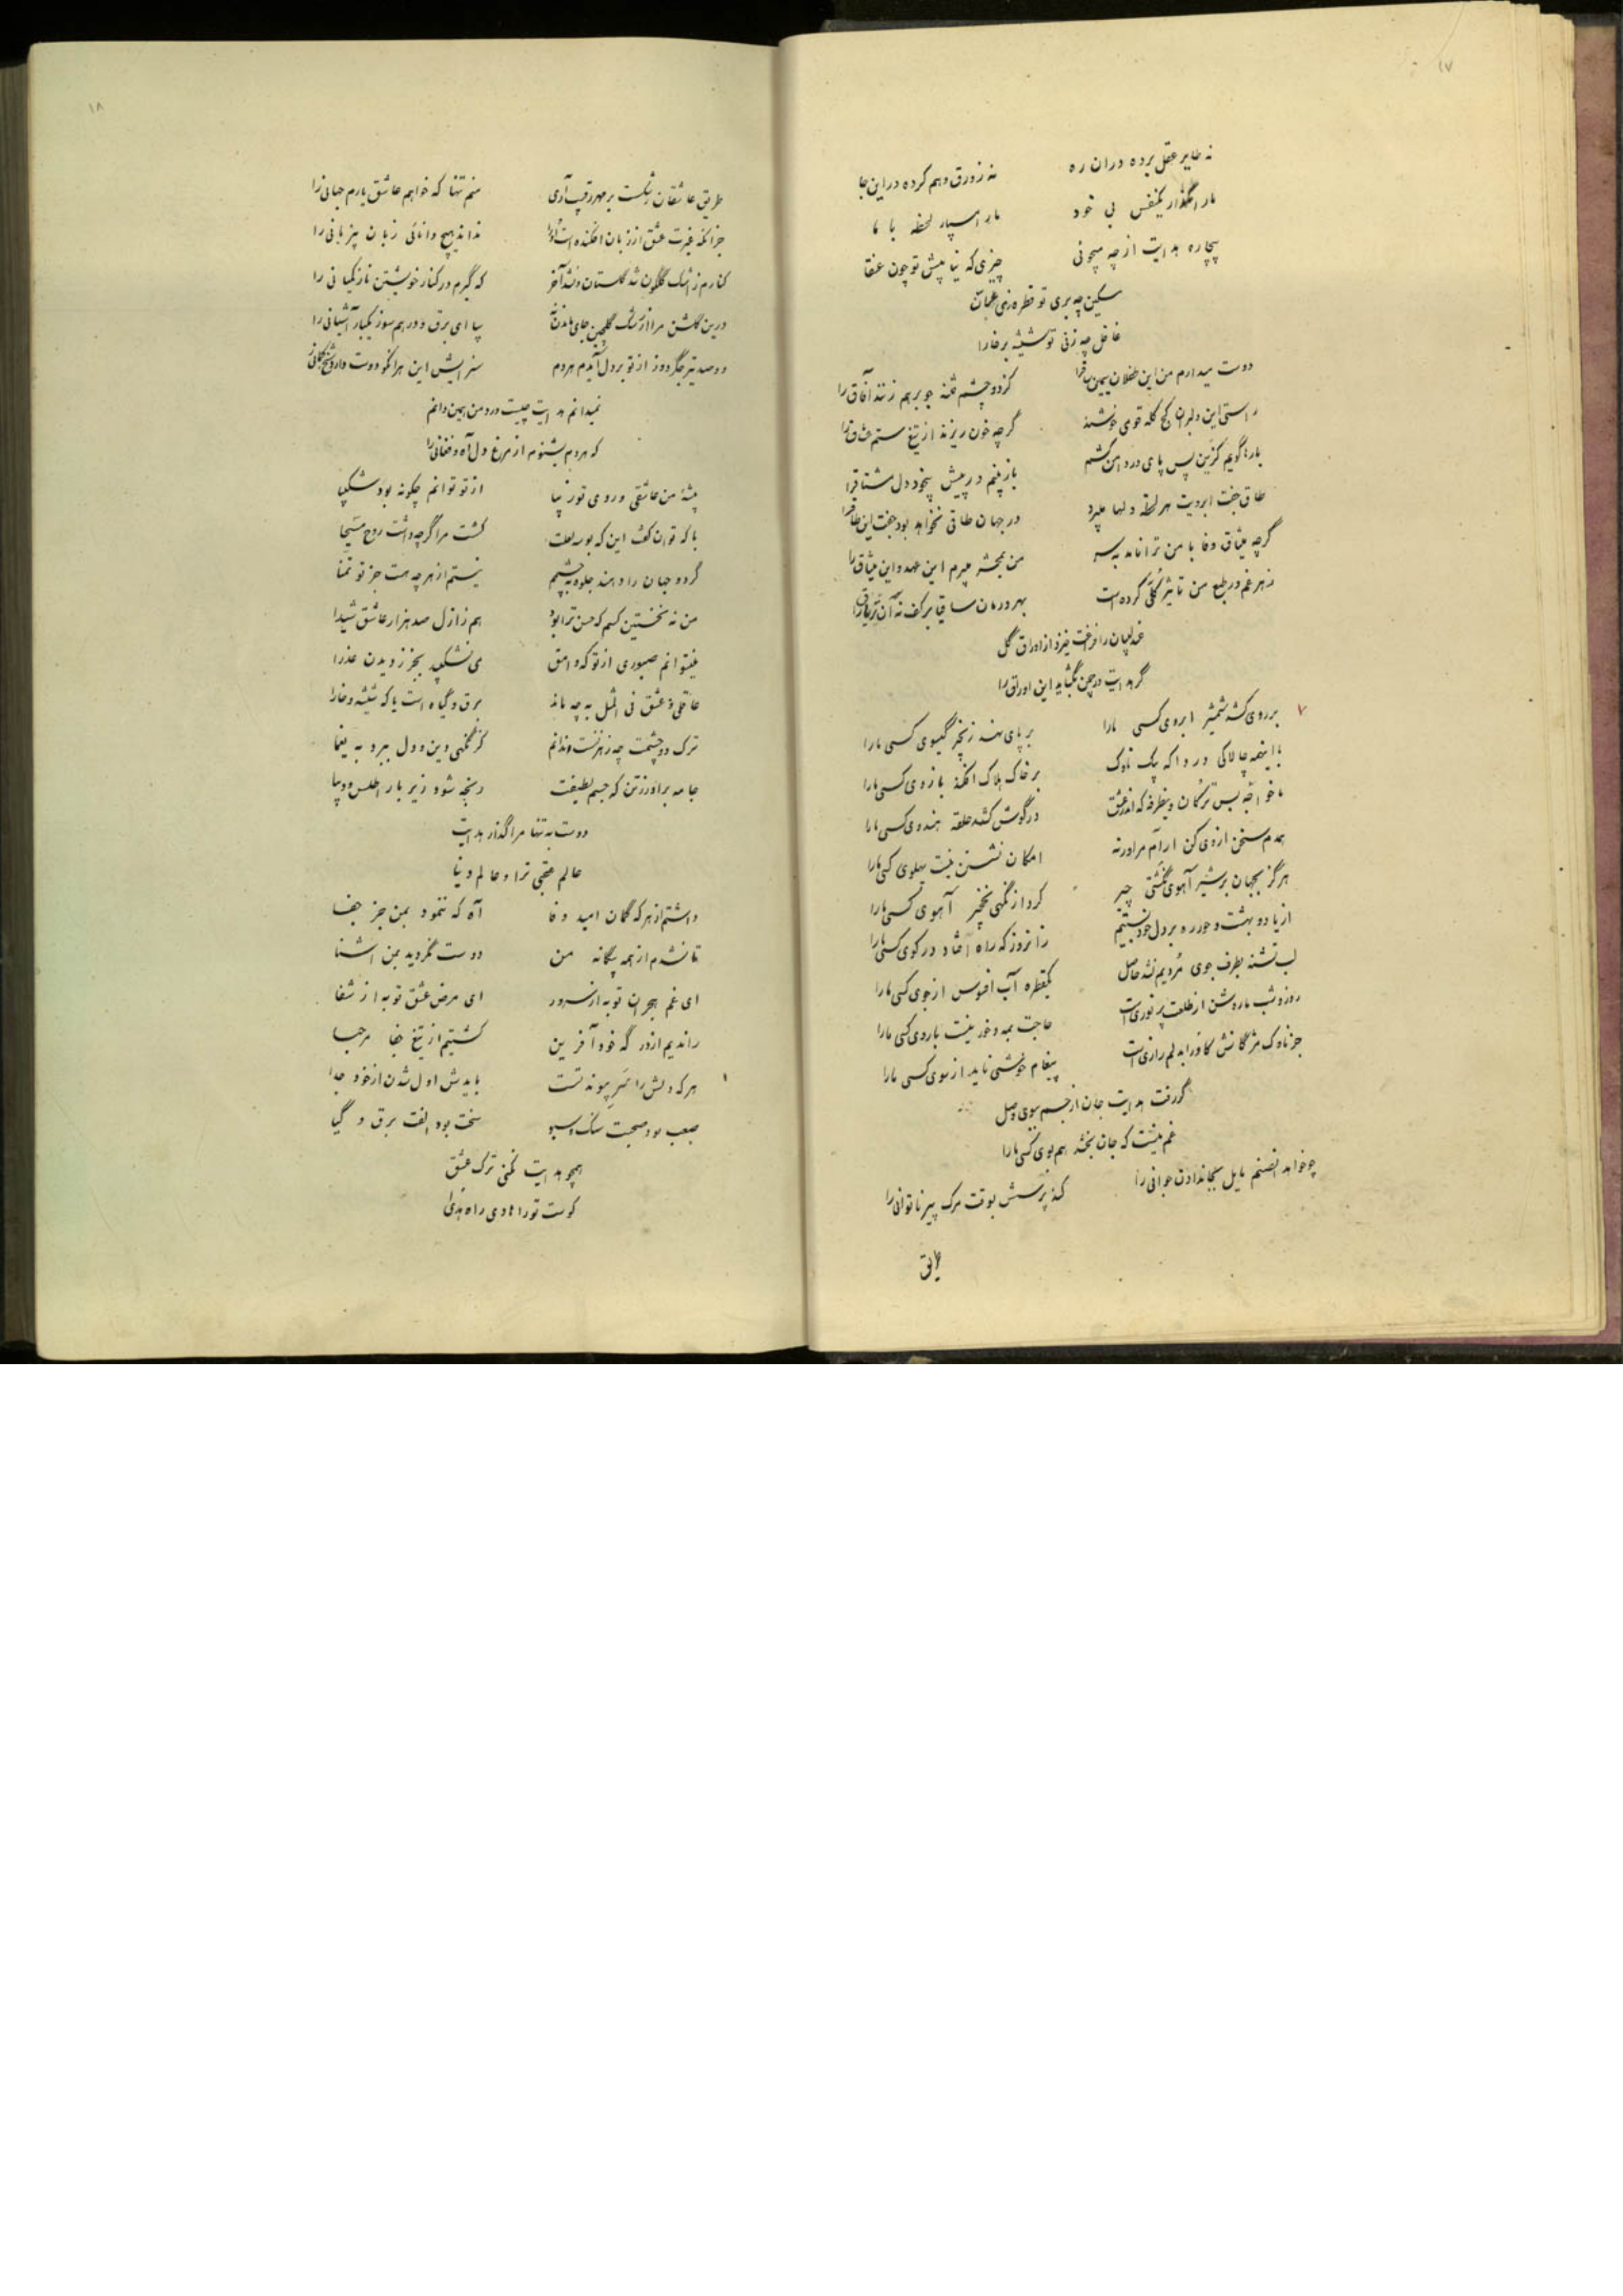 ۱۷
نه طایر عقل برده در آن ره نه زورق وهم کرده در این جا
ما را بگذار یکنفس بی خود ما را بسپار لحظه با ما
بیچاره هدایت از چه میجوئی چیزی که نیا پیش تو چون عنقا
مسکین چه بری تو قطره زی عمان
غافل چه زنی تو شیشه بر خارا
دوست میدارم من این طفلان سیمین ساقرا کز دو چشم فتنه جو برهم زنند آفاق را
راستی این دلبران کج کله قومی خوشند گرچه خون ریزند از تیغ ستم عشاق را
بارها گویم کزین پس پای در دامن کشم باز بینم در پیش بیخود دل مشتاقرا
طاق جفت ابرویت هر لحظه دلها میبرد در جهان طاقی نخواهد بود جفت این طاقرا
گرچه میثاق وفا با من ترا نامد بسر من بمحشر میبرم این عهد و این میثاق را
زهر غم در طبع من تاثیر کلی کرده است بهر درمان ساقیا بر کف نه آن تریاق را
عندلیبان را فراغت خیزد از اوراق گل
گر هدایت در چمن بگشاید این اوراق را
۷ بر روی کشد شمشیر ابروی کسی ما را بر پای نهد زنجیر گیسوی کسی ما را
با اینهمه چالاکی دردا که بیک ناوک بر خاک هلاک افکند بازوی کسی ما را
ما خواجه بس ترکان وینطرفه که اندر عشق در گوش کشد حلقه هندوی کسی ما را
همدم سخن از وی کن ار آرام مرا ورنه امکان نشستن نیست پهلوی کسی ما را
هرگز بجهان بر شیر آهوی نگشتی چیر کرد از نگهی نخجیر آهوی کسی ما را
از یاد بهشت و حور ره بر دل خود بستیم زانروز که راه افتاد در کوی کسی ما را
لب تشنه بطرف جوی مردیم نشد حاصل یکقطره آب افسوس از جوی کسی ما را
روز و شب ما روشن از طلعت پر نوری است حاجت بمه و خور نیست با روی کسی ما را
جز ناوک مژگانش کاو را بدلم رازی است پیغام خوشی ناید از سوی کسی ما را
گر رفت هدایت جان از جسم ببوی وصل
غم نیست که جان بخشد هم بوی کسی ما را
چو خواهد آن صنم مایل بجاندادن جوانی را کند پرسش بوقت مرگ پیر ناتوانی را
طریق
۱۸
طریق عاشقان رشکست بر مهر رقیب آری منم تنها که خواهم عاشق یارم جهانی را
جز آنکه غیرت عشق از زبان افکنده است او را نداند هیچ دانائی زبان بیزبانی را
کنارم ز اشک گلگون شد گلستان و نشد آخر که گیرم در کنار خویشتن نازک میانی را
درین گلشن مرا از رشک گلچین جای ماندن نه بیا ای برق و درهم سوز یکبار آشیانی را
دو صد تیر جگر دوز از تو بر دل آیدم هردم سزایش این هر آنکو دوست دارد شخ کمانی را
نمیدانم هدایت چیست درد من همین دانم
که هردم بشنوم از مرغ دل آه و فغانی را
پیشه من عاشقی و روی تو زیبا از تو توانم چگونه بود شکیبا
با که توان گفت این که بوسه لعلت کشت مرا گرچه داشت روح مسیحا
گر دو جهان را دهند جلوه بچشمم نیستم از هرچه هست جز تو تمنا
من نه نخستین کسم که حسن ترا بود هم ز ازل صد هزار عاشق شیدا
نیتوانم صبوری از تو که وامق می نشکیبد بجز ز دیدن عذرا
عاقلی و عشق فی المثل به چه ماند برق و گیاه است یا که شیشه و خارا
ترک دو چشمت چه رهزنست ندانم کز نگهی دین و دل ببرد به یغما
جامه برآور ز تن که جسم لطیفت رنجه شود زیر بار اطلس و دیبا
دوست به تنها مرا گذار هدایت
عالم عقبی ترا و عالم دنیا
داشتم از هر که گمان امید وفا آه که ننمود بمن جز جفا
تا نشدم از همه بیگانه من دوست نگردید بمن اشنا
ای غم هجران تو به از سرور ای مرض عشق تو به از شفا
راندیم از در گه خود آفرین کشتیم از تیغ جفا مرحبا
هر که دلش را سر پیوند تست بایدش اول شدن از خود جدا
صعب بود صحبت سنگ و سبو سخت بود الفت برق و گیا
همچو هدایت نکنی ترک عشق
کوست تو را هادی راه هدی